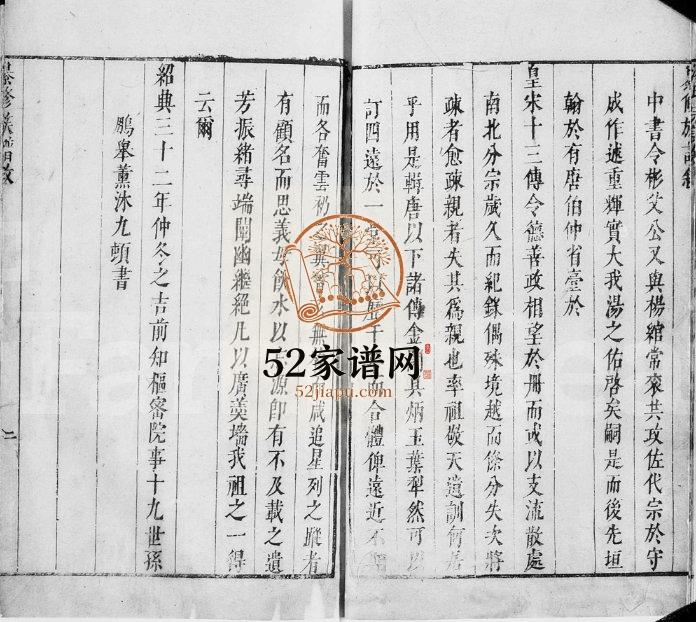 中書令彬父公又與楊綰常袞共攻佐代宗於守
成作述重輝實大我湯之佑啓矣嗣是而後先垣
翰於有唐伯仲省臺於
皇宋十三傳令德善政相望於冊而或以支流散處
南北分宗歲久而紀錄偶殊境越而條分失次將
疎者愈疎親者失其爲親也率祖敬天遺訓何居
乎用是輯唐以下諸傳金其炳玉葉犁然可以
訂四遠於一而合體俾遠近不
而各奮雲礽之咸追星列之蹤者
有顧名而思義毋飲水以源即有不及載之遺
芳振緒尋端闡幽繼絕凡以廣羹墻我祖之一得
云爾
紹興三十二年仲冬之吉前知樞審院事十九世孫
鵬舉薰沐九頓書
二
52家谱网
52jiapu.com